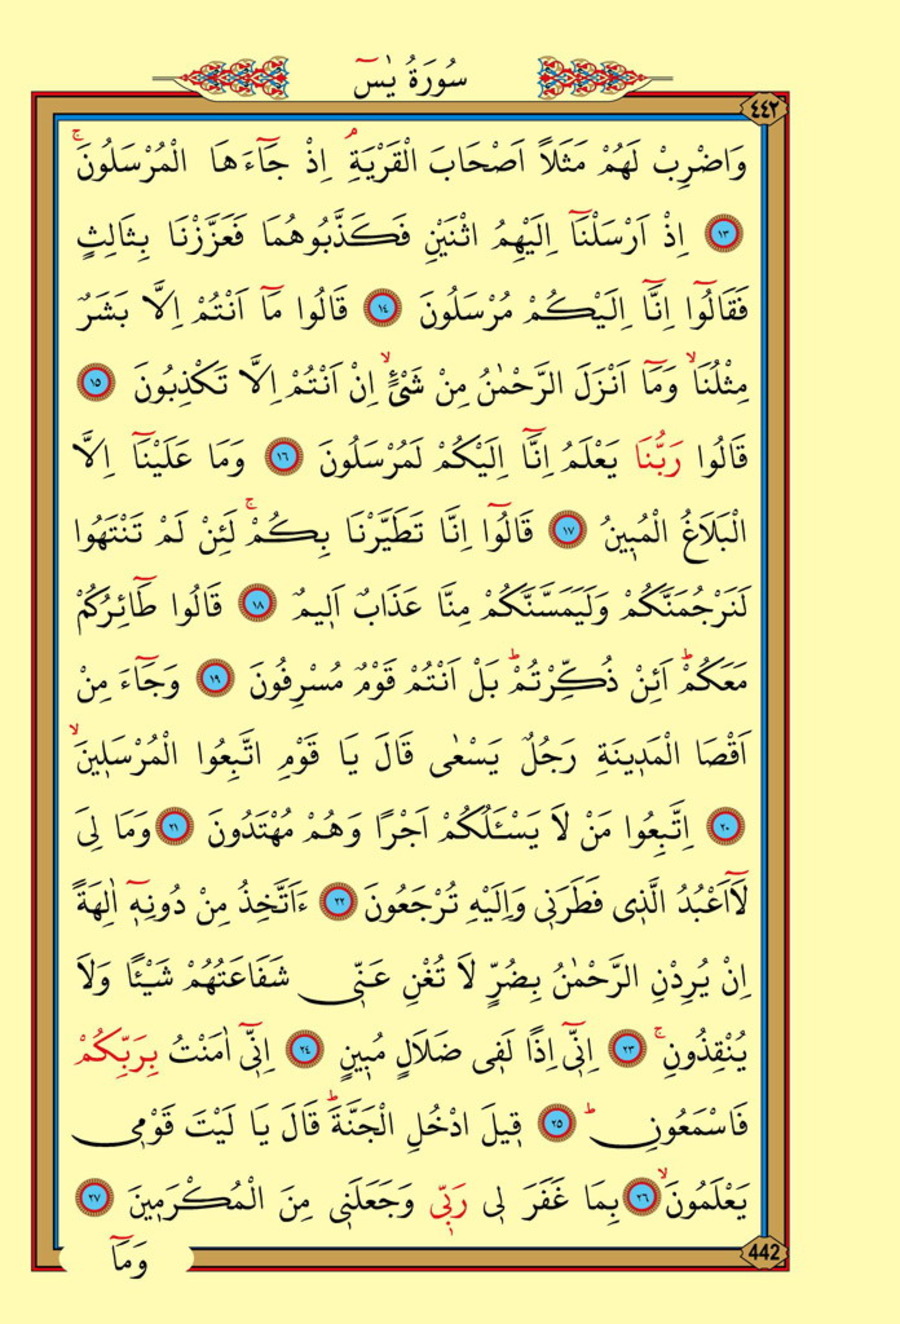 سُورَةُ يٰسٓ
٤٤٢
وَاضْرِبْ لَهُمْ مَثَلاً اَصْحَابَ الْقَرْيَةِۢ اِذْ جَٓاءَهَا الْمُرْسَلُونَۚ
﴿١٣﴾ اِذْ اَرْسَلْنَٓا اِلَيْهِمُ اثْنَيْنِ فَكَذَّبُوهُمَا فَعَزَّزْنَا بِثَالِثٍ
فَقَالُٓوا اِنَّٓا اِلَيْكُمْ مُرْسَلُونَ ﴿١٤﴾ قَالُوا مَٓا اَنْتُمْ اِلَّا بَشَرٌ
مِثْلُنَاۙ وَمَٓا اَنْزَلَ الرَّحْمٰنُ مِنْ شَيْءٍۙ اِنْ اَنْتُمْ اِلَّا تَكْذِبُونَ ﴿١٥﴾
قَالُوا رَبُّنَا يَعْلَمُ اِنَّٓا اِلَيْكُمْ لَمُرْسَلُونَ ﴿١٦﴾ وَمَا عَلَيْنَٓا اِلَّا
الْبَلَاغُ الْمُبٖينُ ﴿١٧﴾ قَالُٓوا اِنَّا تَطَيَّرْنَا بِكُمْۚ لَئِنْ لَمْ تَنْتَهُوا
لَنَرْجُمَنَّكُمْ وَلَيَمَسَّنَّكُمْ مِنَّا عَذَابٌ اَلٖيمٌ ﴿١٨﴾ قَالُوا طَٓائِرُكُمْ
مَعَكُمْؕ اَئِنْ ذُكِّرْتُمْؕ بَلْ اَنْتُمْ قَوْمٌ مُسْرِفُونَ ﴿١٩﴾ وَجَٓاءَ مِنْ
اَقْصَا الْمَدٖينَةِ رَجُلٌ يَسْعٰى قَالَ يَا قَوْمِ اتَّبِعُوا الْمُرْسَلٖينَۙ
﴿٢٠﴾ اِتَّبِعُوا مَنْ لَا يَسْـَٔلُكُمْ اَجْرًا وَهُمْ مُهْتَدُونَ ﴿٢١﴾ وَمَا لِىَ
لَٓا اَعْبُدُ الَّذٖى فَطَرَنٖى وَاِلَيْهِ تُرْجَعُونَ ﴿٢٢﴾ ءَاَتَّخِذُ مِنْ دُونِهٖٓ اٰلِهَةً
اِنْ يُرِدْنِ الرَّحْمٰنُ بِضُرٍّ لَا تُغْنِ عَنّٖى شَفَاعَتُهُمْ شَيْئًا وَلَا
يُنْقِذُونِۚ ﴿٢٣﴾ اِنّٖٓى اِذًا لَفٖى ضَلَالٍ مُبٖينٍ ﴿٢٤﴾ اِنّٖٓى اٰمَنْتُ بِرَبِّكُمْ
فَاسْمَعُونِؕ ﴿٢٥﴾ قٖيلَ ادْخُلِ الْجَنَّةَؕ قَالَ يَا لَيْتَ قَوْمٖى
يَعْلَمُونَۙ ﴿٢٦﴾ بِمَا غَفَرَ لٖى رَبّٖى وَجَعَلَنٖى مِنَ الْمُكْرَمٖينَ ﴿٢٧﴾
442
وَمَٓا